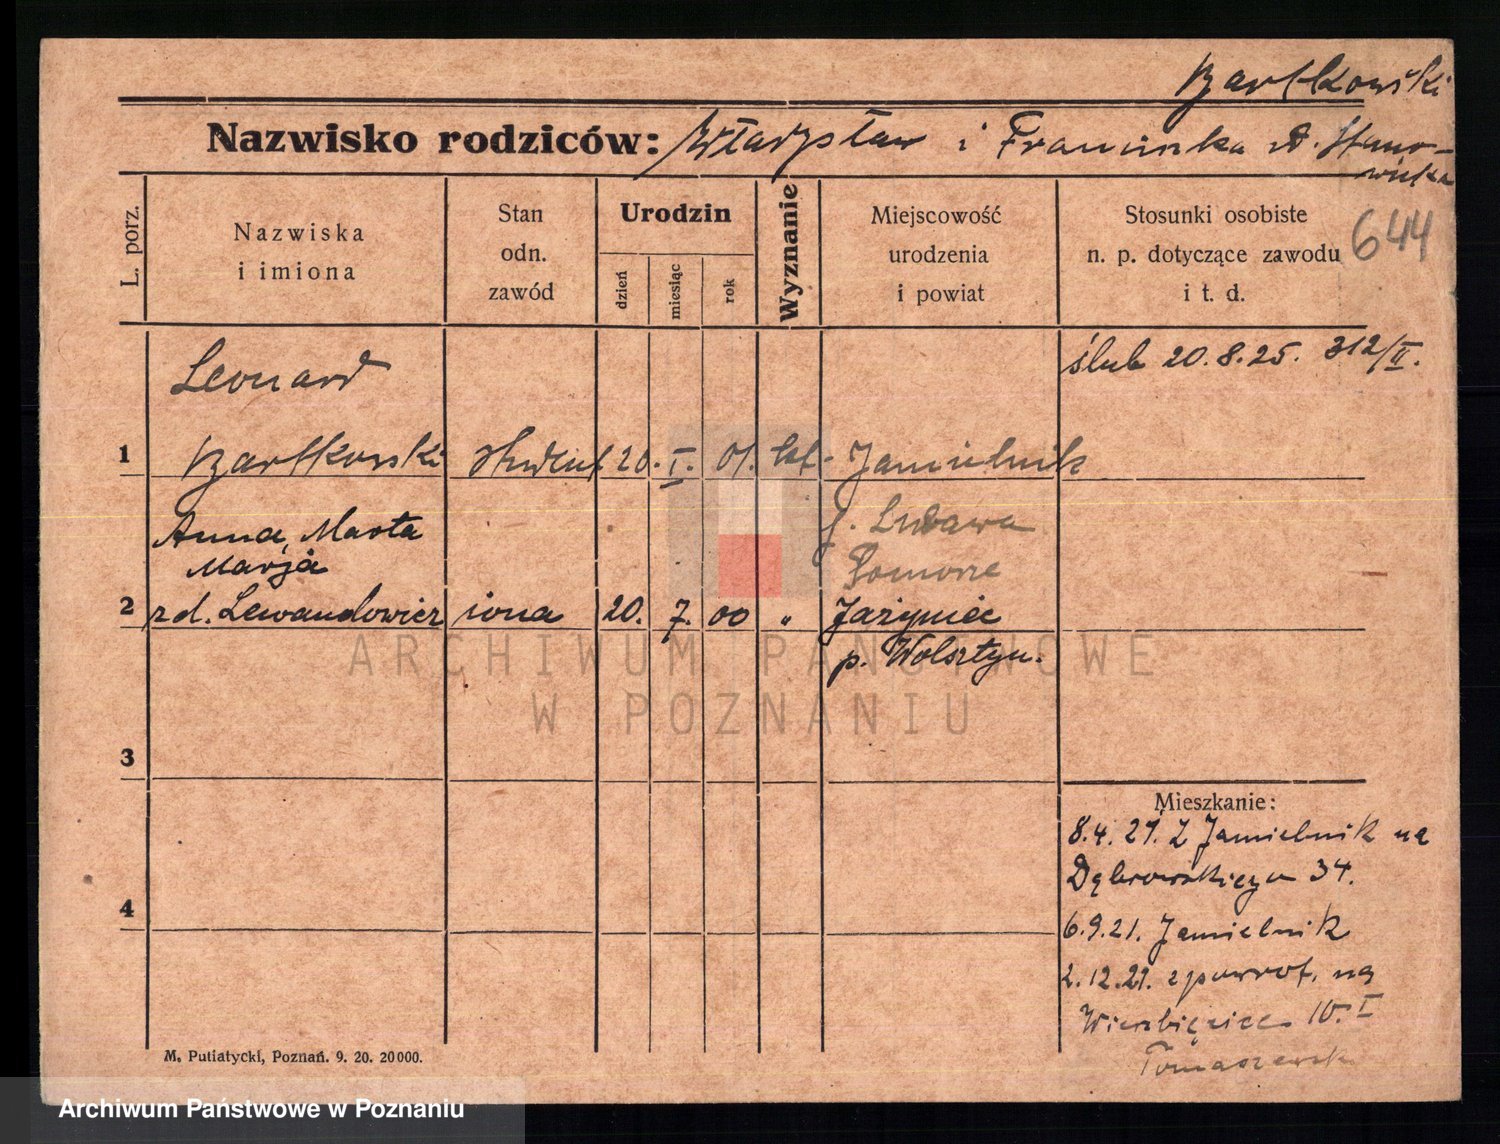 Bartkowski
Nazwisko rodziców: Władysław i Franciszka z d. Stano-
wicka
644
L. porz.
Nazwiska
i imiona
Stan
odn.
zawód
Urodzin
dzień
miesiąc
rok
Wyznanie
Miejscowość
urodzenia
i powiat
Stosunki osobiste
n. p. dotyczące zawodu
i t. d.
Leonard
ślub 20.8.25. 312/II.
1 Bartkowski student 20. I. 01. kat. Jamielnik
p. Lubawa
Pomorze
Anna, Marta
Marja
2 zd. Lewandowicz żona 20. 7. 00 " Jażyniec
p. Wolsztyn.
3
4
Mieszkanie:
8.4.21. Z Jamielnik na
Dąbrowskiego 34.
6.9.21. Jamielnik
2.12.21. zpowrot. na
Wierzbięcice 10. I
Tomaszewsk
M. Putiatycki, Poznań. 9. 20. 20000.
ARCHIWUM PAŃSTWOWE
W POZNANIU
Archiwum Państwowe w Poznaniu